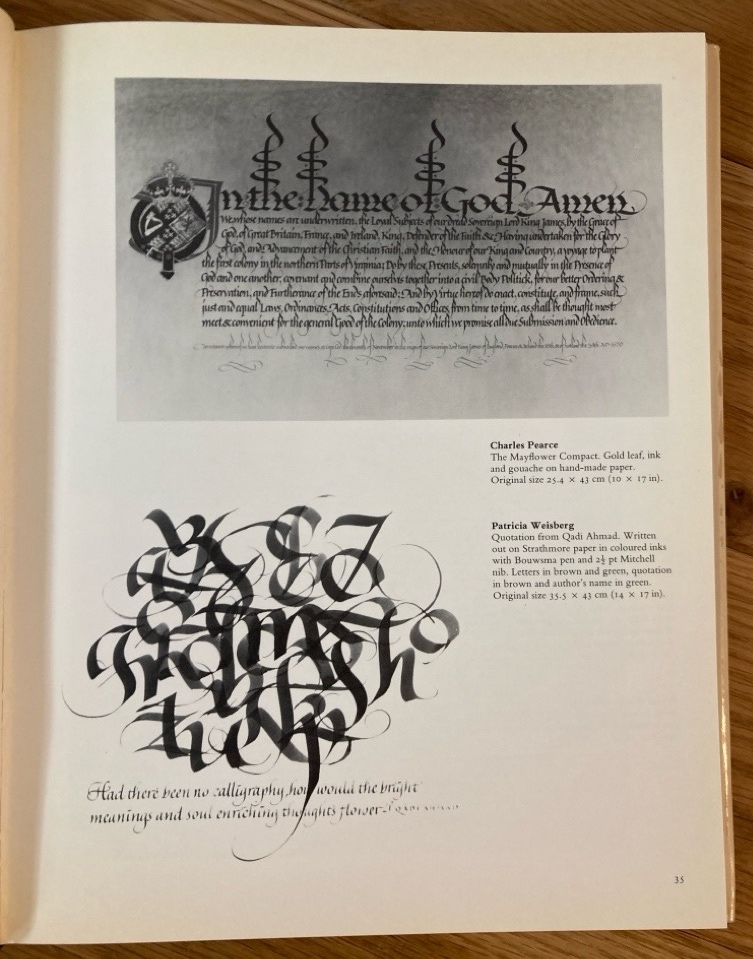 In the Name of God Amen
We whose names are underwritten, the Loyal Subjects of our dread Sovereign Lord King James, by the Grace of
God, of Great Britain, France, and Ireland, King, Defender of the Faith &c. Having undertaken for the Glory
of God, and Advancement of the Christian Faith, and the Honour of our King and Country, a voyage to plant
the first colony in the northern Parts of Virginia; Do by these Presents, solemnly and mutually in the Presence of
God and one another, covenant and combine ourselves together into a civil Body Politick, for our better Ordering &
Preservation, and Furtherance of the Ends aforesaid; And by Virtue hereof do enact, constitute, and frame, such
just and equal Laws, Ordinances, Acts, Constitutions and Offices, from time to time, as shall be thought most
meet & convenient for the general Good of the Colony; unto which we promise all due Submission and Obedience.
Charles Pearce
The Mayflower Compact. Gold leaf, ink
and gouache on hand-made paper.
Original size 25.4 × 43 cm (10 × 17 in).
Patricia Weisberg
Quotation from Qadi Ahmad. Written
out on Strathmore paper in coloured inks
with Bouwsma pen and 2½ pt Mitchell
nib. Letters in brown and green, quotation
in brown and author's name in green.
Original size 35.5 × 43 cm (14 × 17 in).
Had there been no calligraphy, how would the bright
meanings and soul enriching thoughts flower
35